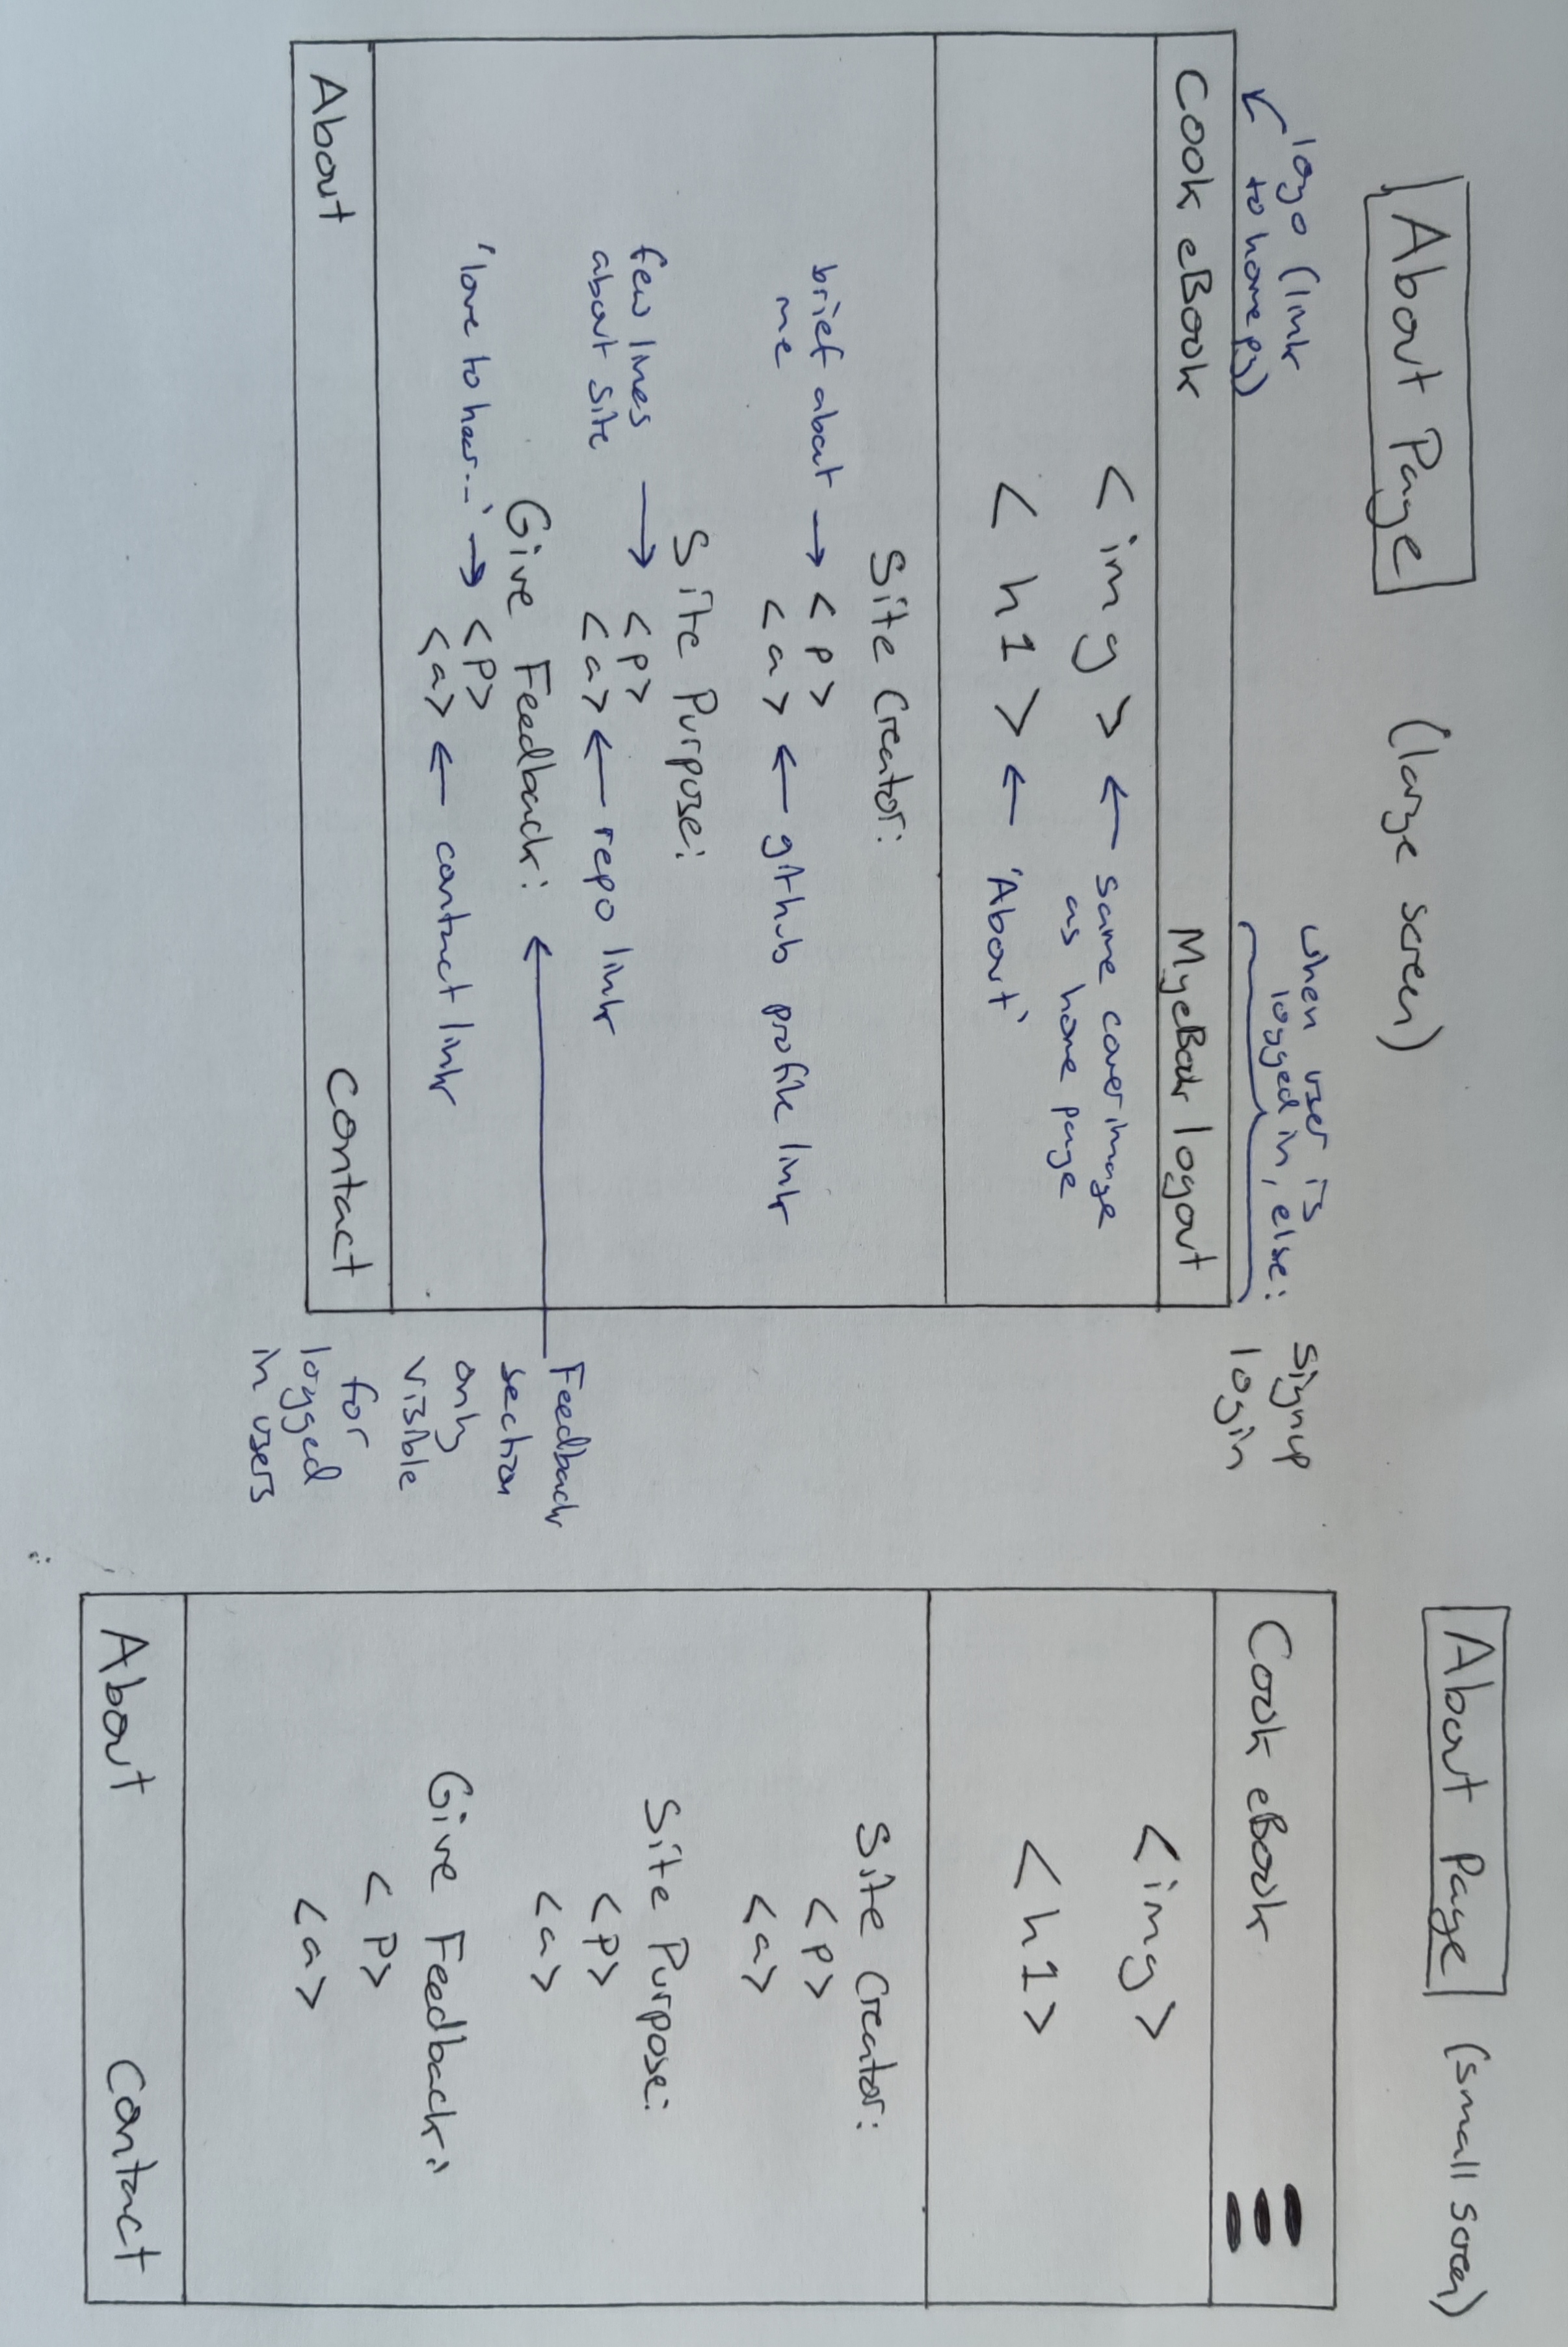 About Page (large screen)
logo (link
to home pg)
when user is
logged in, else:
Signup
login
Cook eBook MyeBook logout
<img> ← same cover image
as home page
<h1> ← 'About'
Site Creator:
brief about → <p>
me
<a> ← github profile link
Site Purpose:
few lines → <p>
about site
<a> ← repo link
Give Feedback: ←
'love to hear...' → <P>
<a> ← contact link
Feedback
section
only
visible
for
logged
in users
About contact
About Page (small screen)
Cook eBook
<img>
<h1>
Site Creator:
<P>
<a>
Site Purpose:
<P>
<a>
Give Feedback:
<P>
<a>
About contact